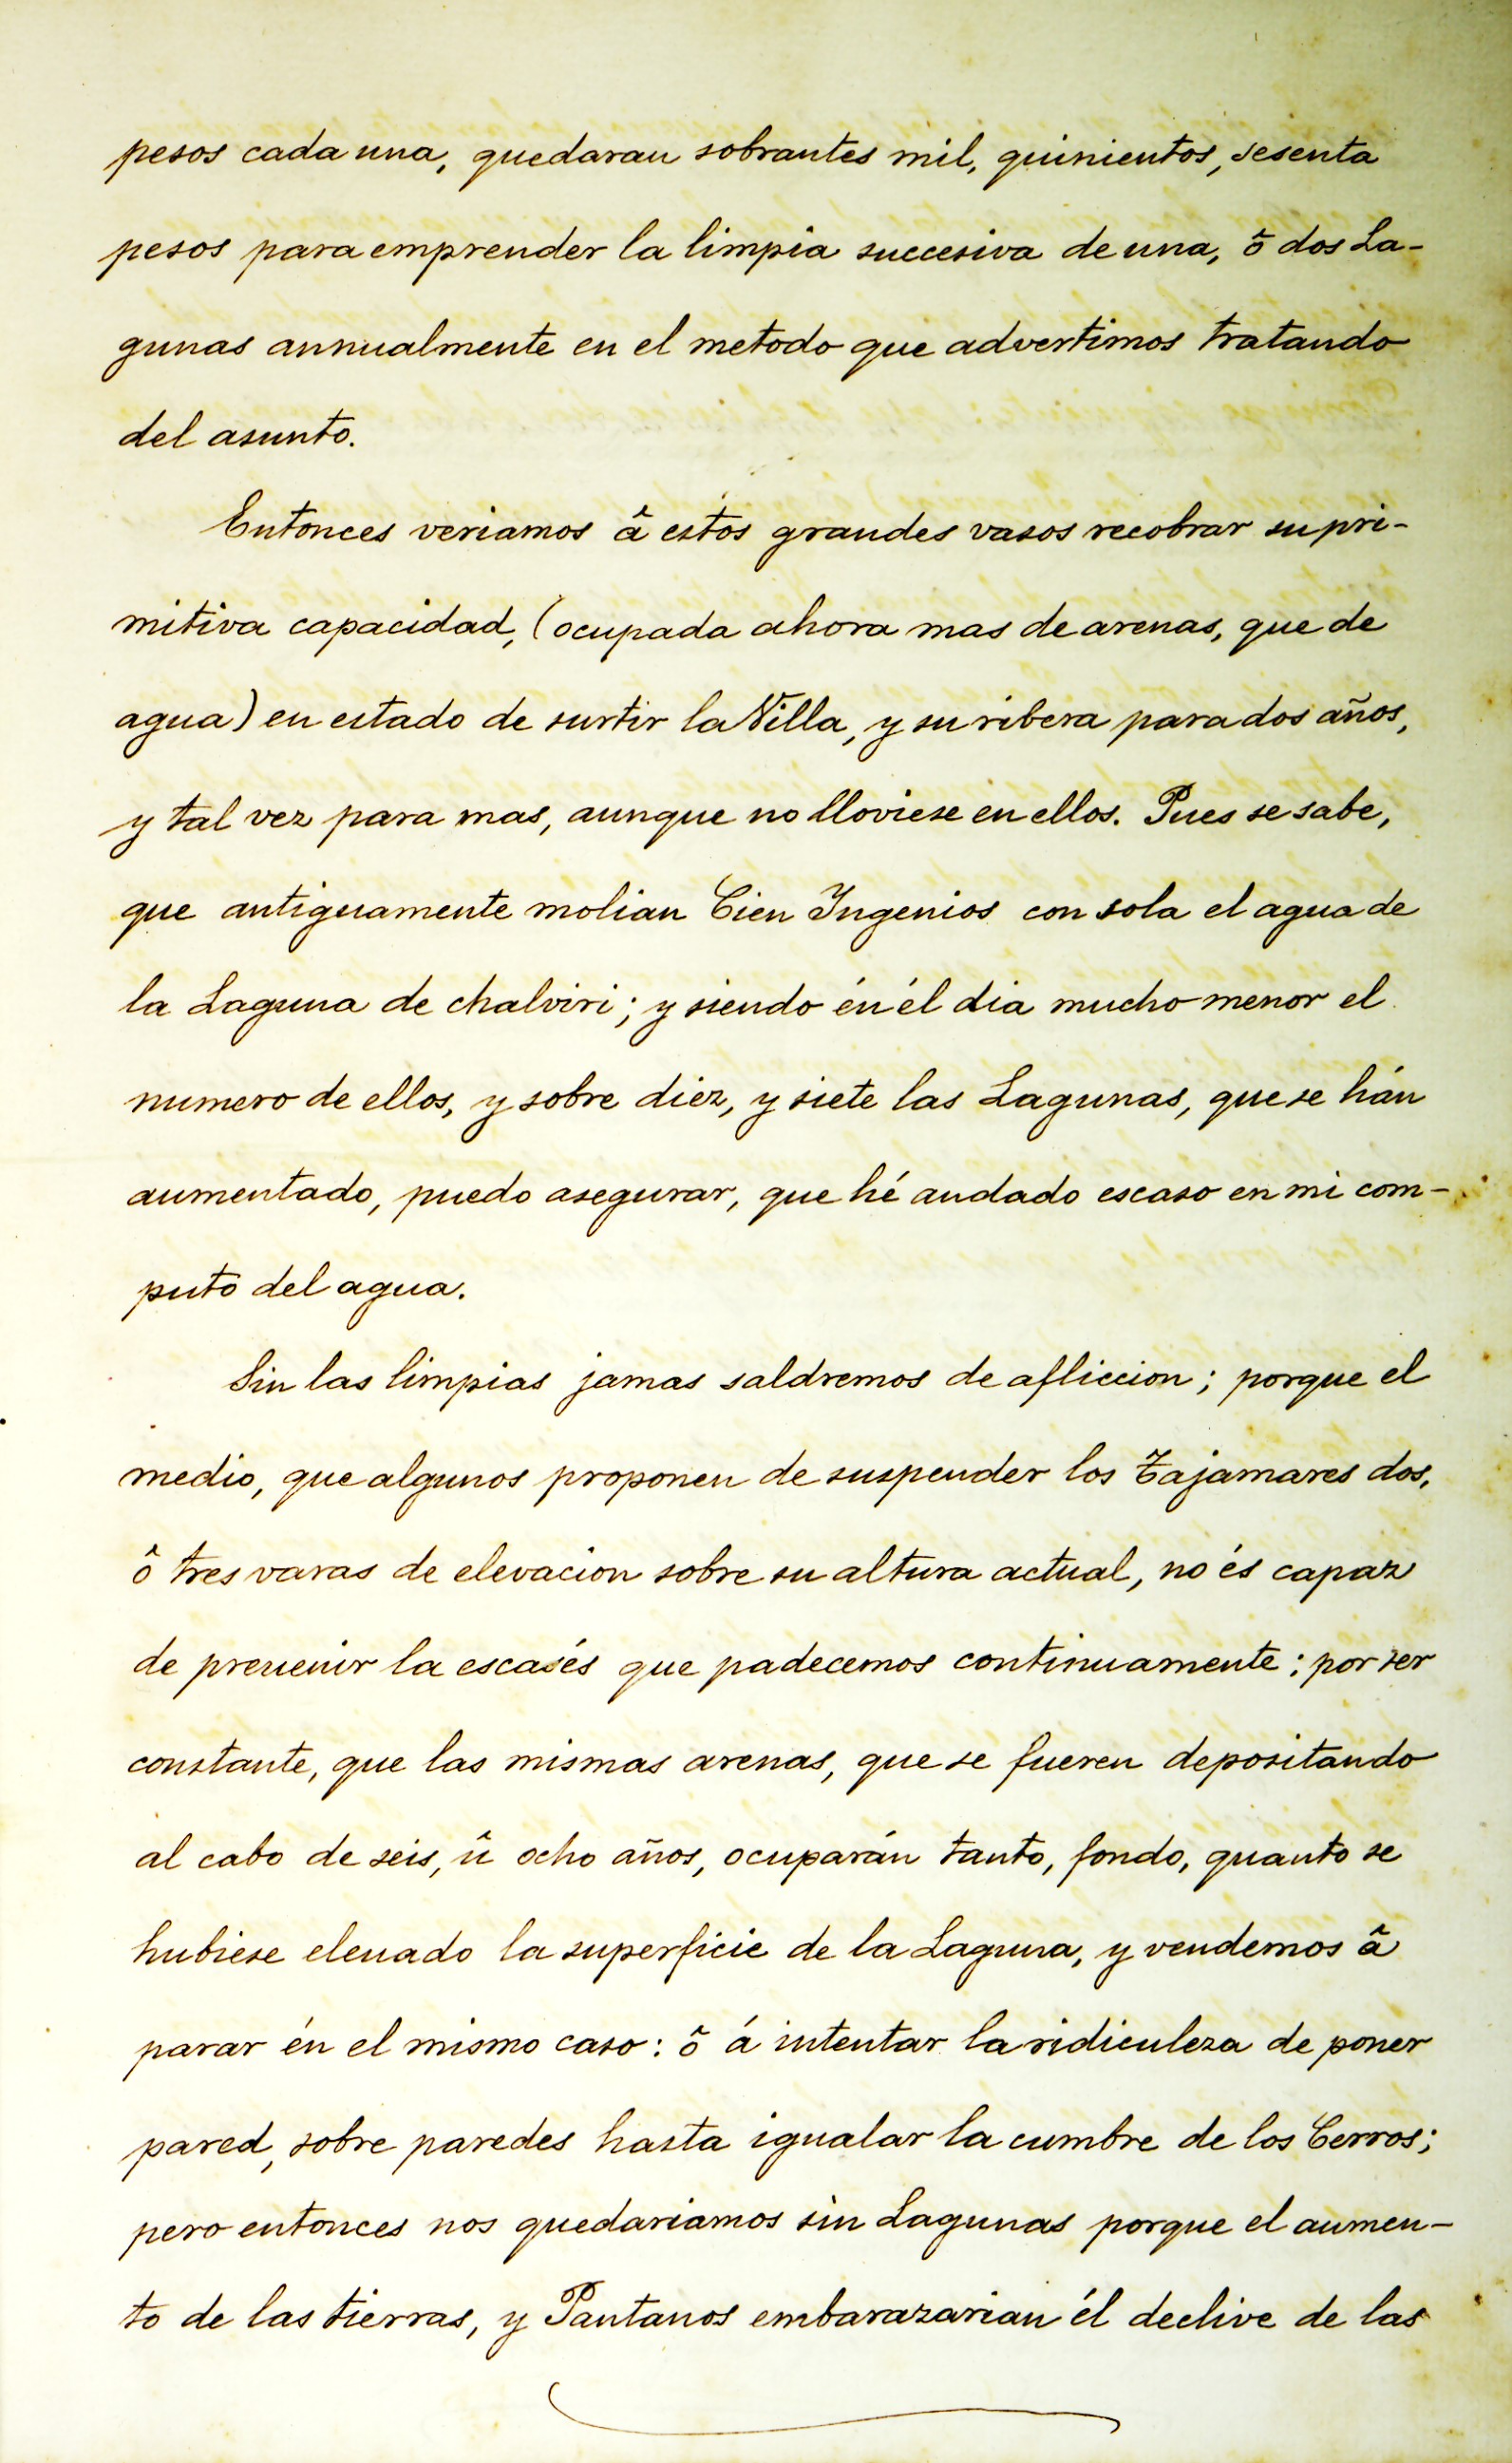 pesos cada una, quedaran sobrantes mil, quinientos, sesenta
pesos para emprender la limpia succesiva de una, ô dos La-
gunas annualmente en el metodo que advertimos tratando
del asunto.
Entonces veriamos â estos grandes vasos recobrar su pri-
mitiva capacidad, (ocupada ahora mas de arenas, que de
agua) en estado de surtir la Villa, y su ribera para dos años,
y tal vez para mas, aunque no lloviese en ellos. Pues se sabe,
que antiguamente molian Cien Ingenios con sola el agua de
la Laguna de chalviri; y siendo én él dia mucho menor el
numero de ellos, y sobre diez, y siete las Lagunas, que se hán
aumentado, puedo asegurar, que hé andado escaso en mi com-
puto del agua.
Sin las limpias jamas saldremos de afliccion; porque el
medio, que algunos proponen de suspender los Tajamares dos,
ô tres varas de elevacion sobre su altura actual, no és capaz
de preuenir la escasés que padecemos continuamente: por ser
constante, que las mismas arenas, que se fueren depositando
al cabo de seis, û ocho años, ocuparán tanto, fondo, quanto se
hubiese eleuado la superficie de la Laguna, y vendemos â
parar én el mismo caso: ô á intentar la ridiculeza de poner
pared, sobre paredes hasta igualar la cumbre de los Cerros;
pero entonces nos quedariamos sin Lagunas porque el aumen-
to de las tierras, y Pantanos embarazarian él declive de las